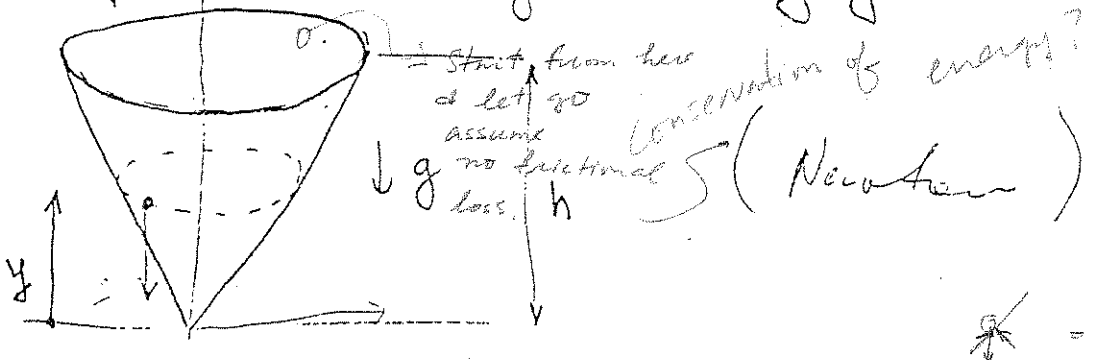 Start from here
& let go
assume
no frictional
loss.
conservation of energy?
(Newton)
g
h
y